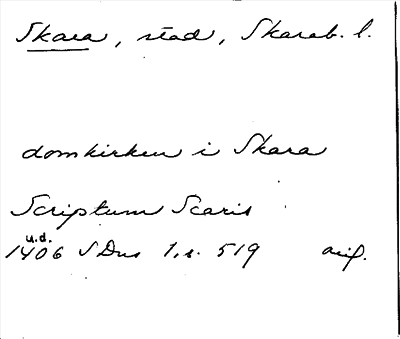 Skara, stad, Skarab. l.
domkirken i Skara
Scriptum Scaris
u.d.
1406 SDns 1, s. 519 avs.